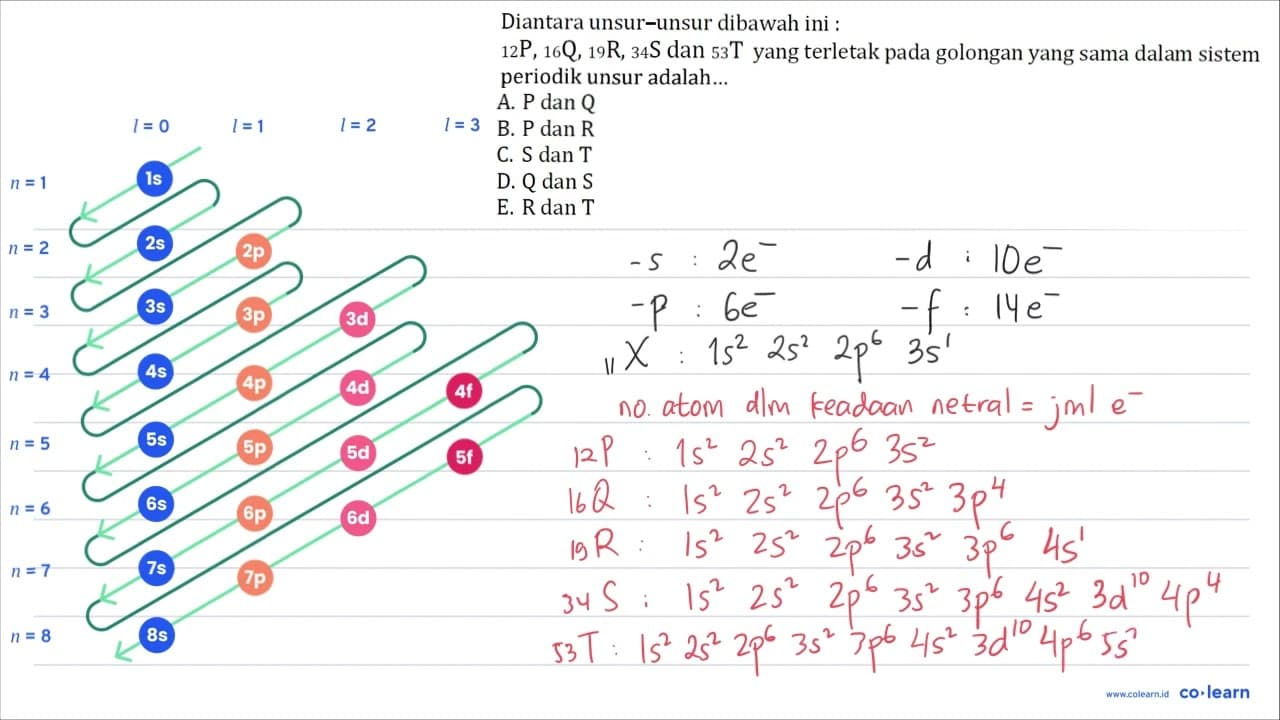 Diantara unsur–unsur dibawah ini :
₁₂P, ₁₆Q, ₁₉R, ₃₄S dan ₅₃T yang terletak pada golongan yang sama dalam sistem
periodik unsur adalah...
A. P dan Q
B. P dan R
C. S dan T
D. Q dan S
E. R dan T
l = 0 l = 1 l = 2 l = 3
n = 1 1s
n = 2 2s 2p
n = 3 3s 3p 3d
n = 4 4s 4p 4d 4f
n = 5 5s 5p 5d 5f
n = 6 6s 6p 6d
n = 7 7s 7p
n = 8 8s
-s : 2e⁻ -d : 10e⁻
-p : 6e⁻ -f : 14e⁻
₁₁X : 1s² 2s² 2p⁶ 3s¹
no. atom dlm keadaan netral = jml e⁻
₁₂P : 1s² 2s² 2p⁶ 3s²
₁₆Q : 1s² 2s² 2p⁶ 3s² 3p⁴
₁₉R : 1s² 2s² 2p⁶ 3s² 3p⁶ 4s¹
₃₄S : 1s² 2s² 2p⁶ 3s² 3p⁶ 4s² 3d¹⁰ 4p⁴
₅₃T : 1s² 2s² 2p⁶ 3s² 3p⁶ 4s² 3d¹⁰ 4p⁶ 5s²
www.colearn.id co·learn